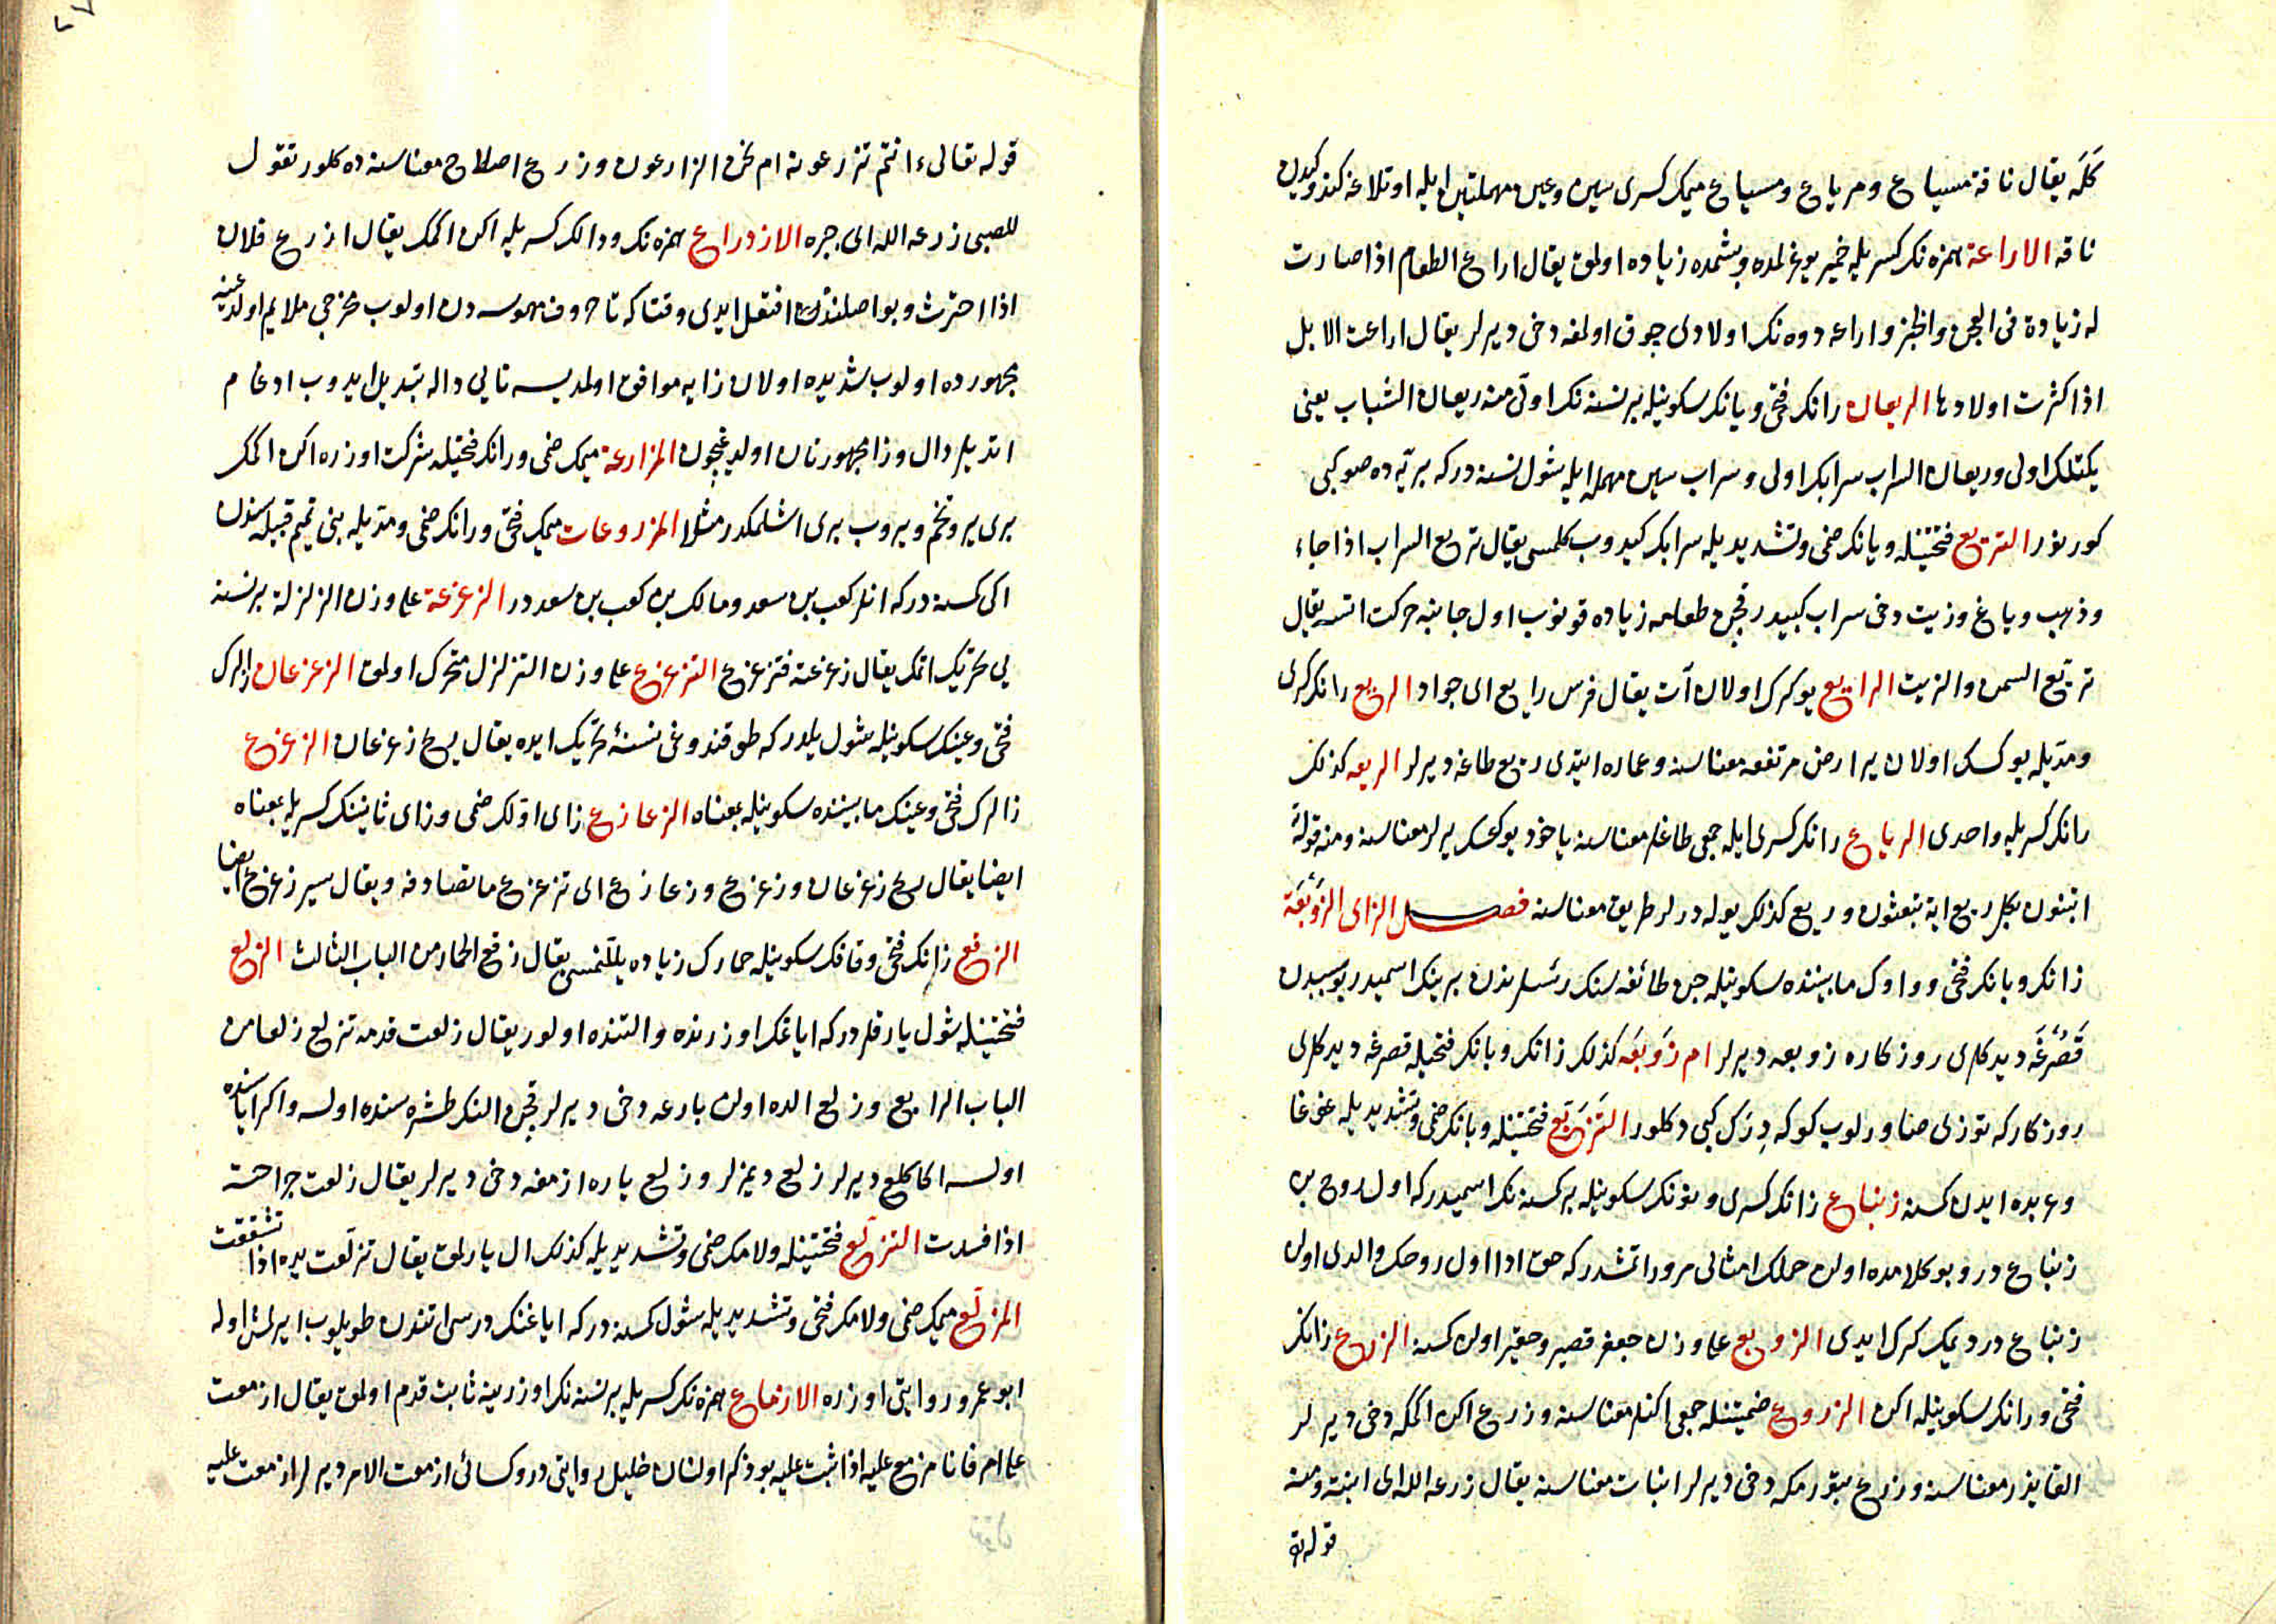 كله يقال ناقة مسياع ومرياع ومسياع ميمك كسرى سين وعين مهملتين ايله اوتلاغه كيدن
ناقه الاراعة همزه نك كسريله خمير يوغرلمده وبشمده زياده اولمق يقال اراع الطعام اذا صارت
له زيادة فى العجن والخبز واراعه دوه نك اولادى چوق اولمغه دخى ديرلر يقال اراعت الابل
اذا كثرت اولادها الريعان رانك فتحى ويانك سكونيله بر نسنه نك اوّلى منه ريعان الشباب يعنى
يكتلك اولى وريعان السراب سرابك اولى وسراب سين مهمله ايله شول نسنه دركه بريّه ده صو كبى
كورنور التريّع فتحتينله ويانك ضمى وتشديديله سرابك كيدوب كلمسى يقال تريع السراب اذا جاء
وذهب وياغ وزيت دخى سراب كبيدر قچن طعامه زياده قونوب اول جانبه حركت اتسه يقال
تريّع السمن والزيت الرايع يوكرك اولان آت يقال فرس رايع اى جواد الريع رانك كسرى
ومدّيله يوكسك اولان ير ارض مرتفعه معناسنه وعماره ايتدى ريع طاغه ديرلر الريعه كذلك
رانك كسريله واحدى الرياع رانك كسرى ايله جمعى طاغلر معناسنه ياخود يوكسك يرلر معناسنه ومنه قوله
اتبنون بكل ريع اية تعبثون وريع كذلك يوله درلر طريق معناسنه فصل الزاى الزَوْبَعَة
زانك وبانك فتحى وواوك مابيننده سكونيله جن طائفه سنك رئيسلرندن برينك اسميدر بو سببدن
قَصِرْغَه ديدكلرى روزكاره زوبعه ديرلر ام زَوْبَعَه كذلك زانك وبانك فتحيله قصرغه ديدكلرى
روزكاركه توزى صاورلوب كوكه دِرَك كبى دكلور التَزَبُّع فتحتينله وبانك ضمى وتشديديله غوغا
وعربده ايدن كسنه زنباع زانك كسرى ونونك سكونيله بر كسنه نك اسميدركه اول روح بن
زنباع در وبو كلامده اولن حملك امثالى مرور اتمشدركه حق ادا اول روحك والدى اولن
زنباع در ديمك كرك ايدى الزوبع على وزن جعفر قصير وحقير اولن كسنه الزرع زانك
فتحى ورانك سكونيله اكن الزروع ضمتينله جمعى اكنلر معناسنه وزرع اكن اكمكه دخى ديرلر
القا بذر معناسنه وزرع بتورمكه دخى ديرلر انبات معناسنه يقال زرعه الله اى انبته ومنه
قوله تع
قوله تعالى ءانتم تزرعونه ام نحن الزارعون وزرع اصلاح معناسنه ده كلور تقول
للصبى زرعه الله اى جبره الازدراع همزه نك ودالك كسريله اكن اكمك يقال ازرع فلان
اذا احترث وبو اصلنده افتعل ايدى وقتاكه تا حروف مهموسه دن اولوب مخرجى ملايم اولدغينه
مجهورده اولوب شديده اولان زايه موافق اولمديسه تايى داله تبديل ايدوب ادغام
اتديلر دال وزا مجهورتان اولديغيچون المزارعة ميمك ضمى ورانك فتحيله شركت اوزره اكن اكمك
برى ير وتخم ويروب برى اشلمكدر مثلا المزروعات ميمك فتحى ورانك ضمى ومدّيله بنى تميم قبيله سندن
اكى كسنه دركه انلر كعب بن سعد ومالك بن كعب بن سعددر الزعزعة على وزن الزلزلة بر نسنه
يى تحريك اتمك يقال زعزعته فتزعزع التزعزع على وزن التزلزل متحرك اولمق الزعزعان زالرك
فتحى وعينك سكونيله شول يلدركه طوقندوغى نسنه‌ٔ تحريك ايده يقال ريح زعزعان الزعزع
زالرك فتحى وعينك مابيننده سكونيله بمعناه الزعازع زاى اوّلك ضمى وزاى ثانينك كسريله بمعناه
ايضا يقال ريح زعزعان وزعزع وزعازع اى تزعزع ما تصادفه ويقال سير زعزع ايضا
الزقع زانك فتحى وقافك سكونيله حمارك زياده يللنمسى يقال زقع الحمار من الباب الثالث الزلع
فتحتينله شول يارقلردركه اياغك اوزرنده والتنده اولور يقال زلعت قدمه تزلع زلعا من
الباب الرابع وزلع الده اولن يارغه دخى ديرلر قچن النك طشره سنده اولسه واكر اياسنده
اولسه اكا كلع ديرلر زلع ديمزلر وزلع ياره ازمغه دخى ديرلر يقال زلعت جراحته
اذا فسدت التزلّع فتحتينله ولامك ضمى وتشديديله كذلك ال يارلمق يقال تزلّعت يده اذا تشققت
المزلّع ميمك ضمى ولامك فتحى وتشديديله شول كسنه دركه اياغنك درسى اتندن طويلوب ايرلمش اوله
ابو عمرو روايتى اوزره الازماع همزه نك كسريله بر نسنه نك اوزرينه ثابت قدم اولمق يقال ازمعت
على امر فانا مزمع عليه اذا ثبت عليه بو ذكر اولنان خليل روايتى در وكسائى ازمعت الامر ديرلر ازمعت عليه